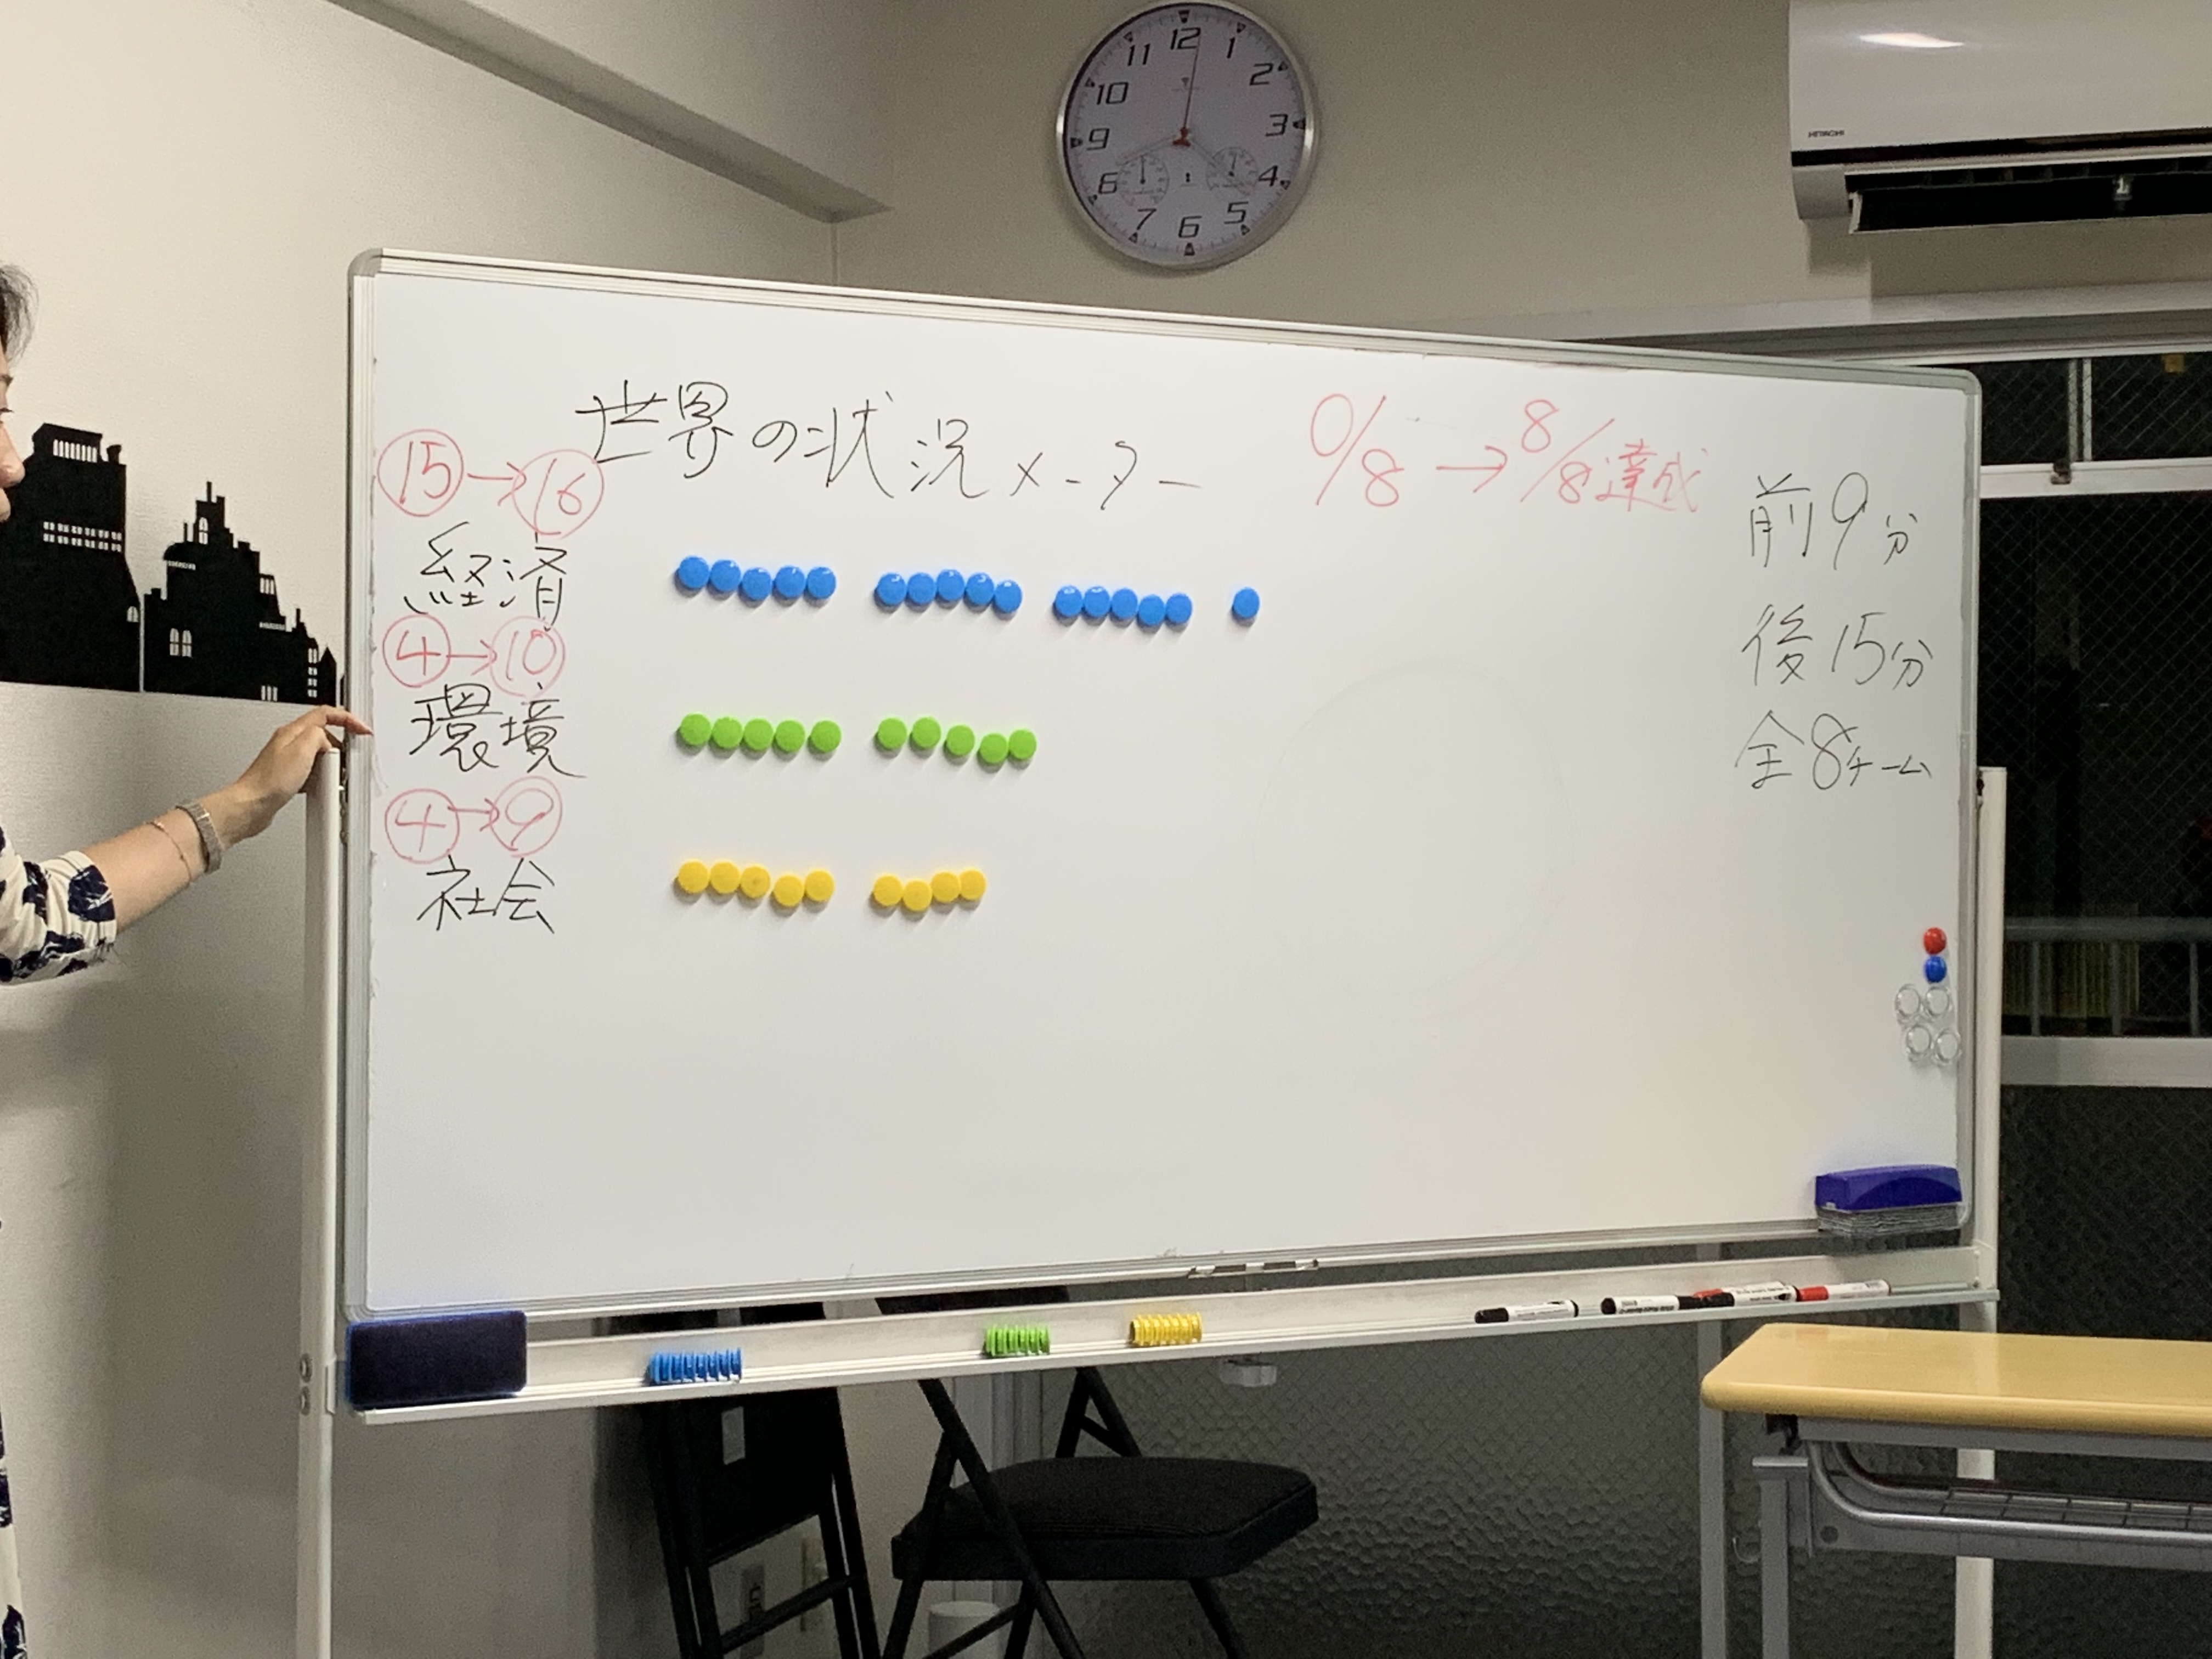 12
11 1
10 2
9 3
6 4
7 6 5
HITACHI
世界の状況メーター
0/8→8/8達成
15→16
経済
4→10
環境
4→9
社会
前9分
後15分
全8チーム